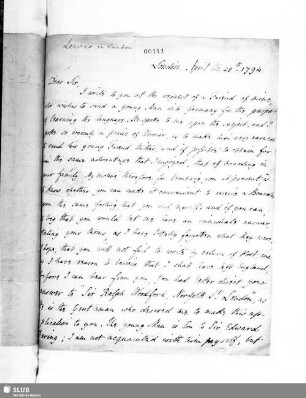 00141
London April the 28th. 1794
Dear Sir,
I write to you at the request of a Friend of mine
who wishes to send a young Man into Germany for the purpose
of learning the language. He spoke to me upon the subject, and I
so warmly in praise of Weimar as to made him very
to send his young Friend thither and if possible, to obtain for
him the same advantage that I enjoyed, that of boarding in
your family. My motive therefore for troubling you at present is
to know whether you can make it convenient to receive a Boarder
upon the same footing that you did
beg that you would let me have an immediate answer
your terms as I have totally forgotten what they were.
I hope that you will not fail to write by return of Post
as I have reason to believe that I shall have left England
before I can hear from you. You had better direct your
answer to "Sir Ralph Woodford, Norfolk St. London" as
he is the Gentleman who desired me to make this ap-
plication to you. The young Man is Son to Sir Edward
I am not acquainted with him myself, but
SLUB